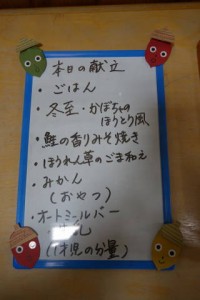 本日の献立
・ごはん
・冬至・かぼちゃの
ほうとう風
・鮭の香りみそ焼き
・ほうれん草のごま和え
・みかん
(おやつ)
・オートミールバー
(1才児の分量)